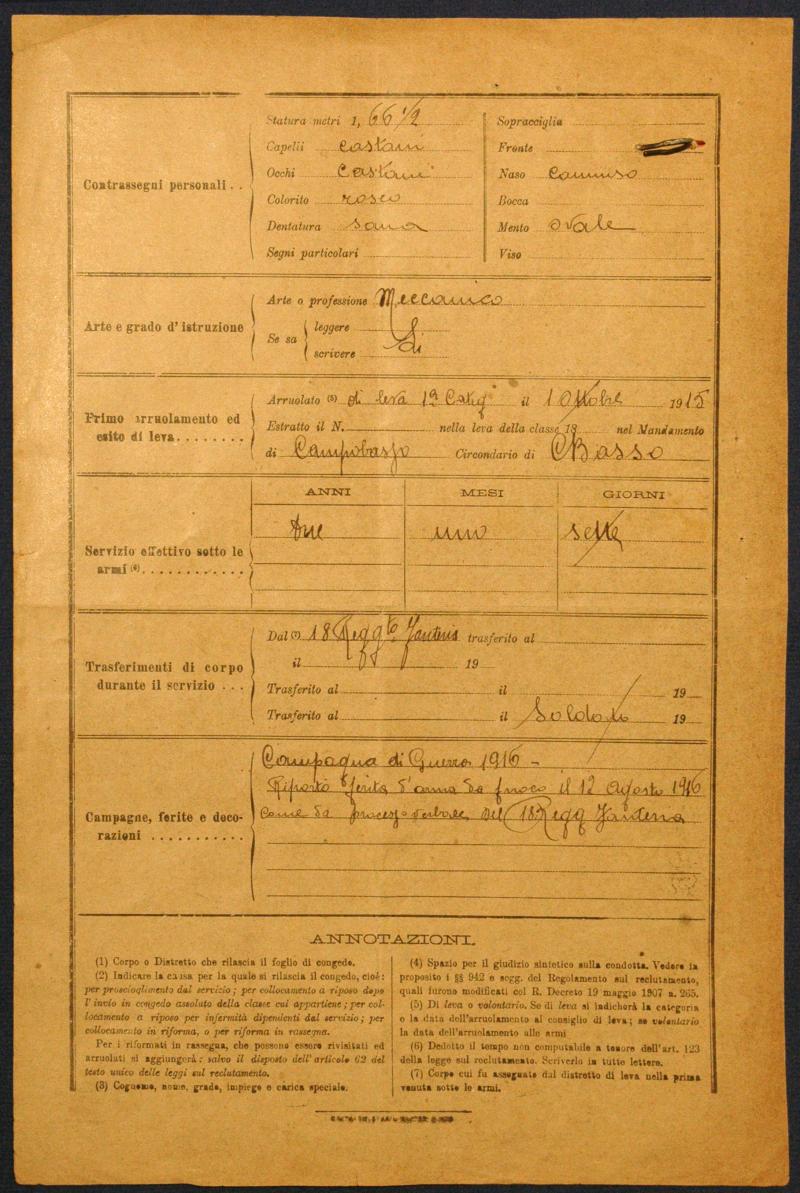 Contrassegni personali . .
Statura metri 1, 66 1/2
Capelli castani
Occhi Castani
Colorito roseo
Dentatura sana
Segni particolari
Sopracciglia
Fronte
Naso Camuso
Bocca
Mento Ovale
Viso
Arte e grado d'istruzione
Arte o professione Meccanico
Se sa
leggere
scrivere
Si
Primo arruolamento ed
esito di leva . . . . . . . .
Arruolato (5) di leva 1ª Catg il 1 Ottobre 1915
Estratto il N. nella leva della classe 18 nel Mandamento
di Campobasso Circondario di CBasso
ANNI MESI GIORNI
Servizio effettivo sotto le
armi (6) . . . . . . . . . . . .
Due uno sette
Trasferimenti di corpo
durante il servizio . . .
Dal (7) 18 Reggto Fanteria trasferito al
il 19
Trasferito al il 19
Trasferito al il Soldato 19
Campagne, ferite e deco-
razioni . . . . . . . . . . .
Campagna di Guerra 1916 -
Riportò ferita d'arma da fuoco il 12 Agosto 1916
come da processo verbale del 18º Regg Fanteria
ANNOTAZIONI.
(1) Corpo o Distretto che rilascia il foglio di congedo.
(2) Indicare la causa per la quale si rilascia il congedo, cioè:
per proscioglimento dal servizio; per collocamento a riposo dopo
l'invio in congedo assoluto della classe cui appartiene; per col-
locamento a riposo per infermità dipendenti dal servizio; per
collocamento in riforma, o per riforma in rassegna.
Per i riformati in rassegna, che possono essere rivisitati ed
arruolati si aggiungerà: salvo il disposto dell'articolo 62 del
testo unico delle leggi sul reclutamento.
(3) Cognome, nome, grado, impiego e carica speciale.
(4) Spazio per il giudizio sintetico sulla condotta. Vedere in
proposito i §§ 942 e segg. del Regolamento sul reclutamento,
quali furono modificati col R. Decreto 19 maggio 1907 n. 265.
(5) Di leva o volontario. Se di leva si indicherà la categoria
e la data dell'arruolamento al consiglio di leva; se volontario
la data dell'arruolamento alle armi
(6) Dedotto il tempo non computabile a tenore dell'art. 123
della legge sul reclutamento. Scriverlo in tutto lettere.
(7) Corpo cui fu assegnato dal distretto di leva nella prima
venuta sotto le armi.